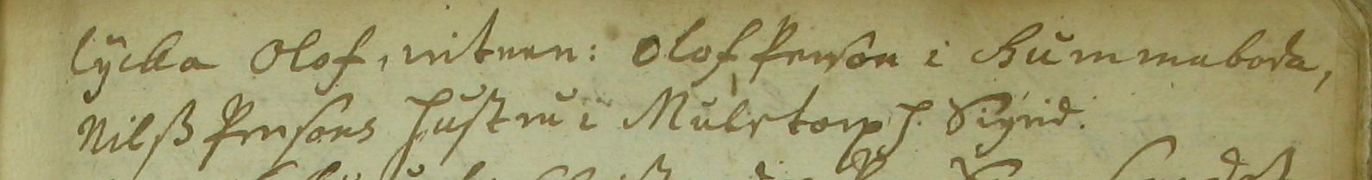 lÿcka Olof, vitnen: Olof Person i Hummaboda,
Nilß Persons Hustru i Muletorp H. Sigrid.